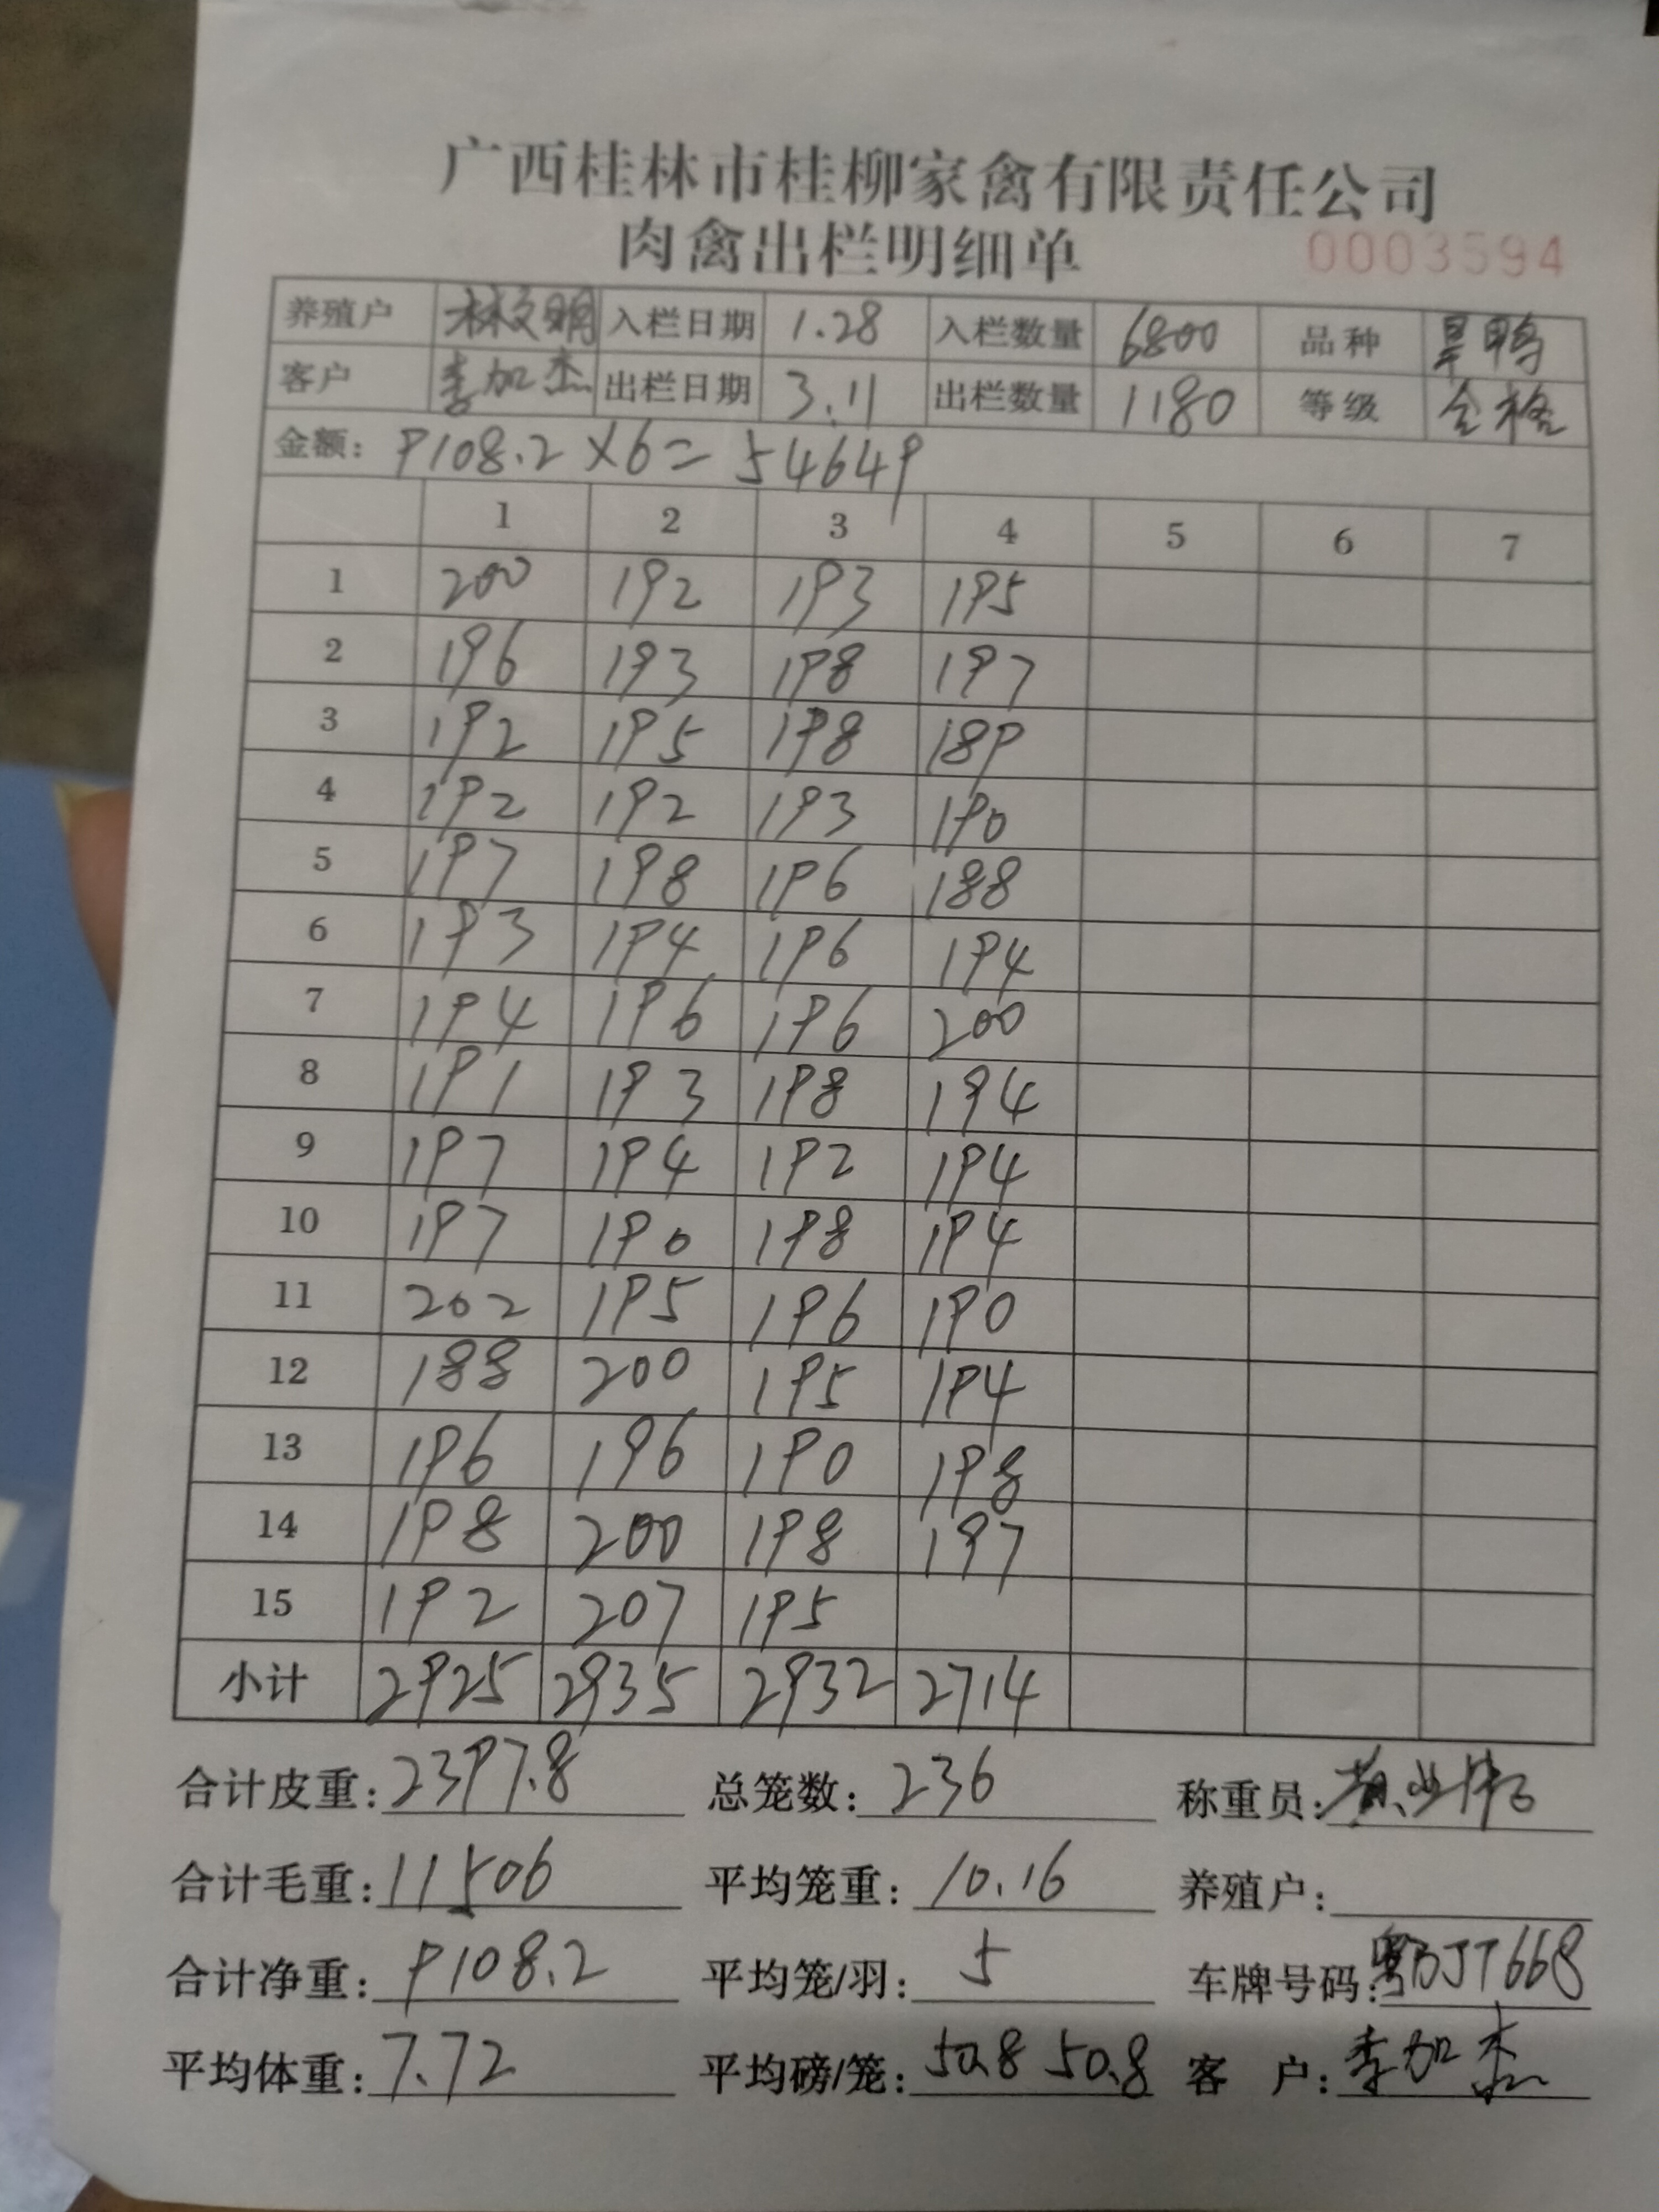 广西桂林市桂柳家禽有限责任公司
肉禽出栏明细单 0003594
养殖户 林文明 入栏日期 1.28 入栏数量 6800 品种 旱鸭
客户 李加杰 出栏日期 3.11 出栏数量 1180 等级 合格
金额: 9108.2×6=54649
1 2 3 4 5 6 7
1 200 192 193 195
2 196 193 198 197
3 192 195 198 189
4 192 192 193 190
5 197 198 196 188
6 193 194 196 194
7 194 196 196 200
8 191 193 198 194
9 197 194 192 194
10 197 190 198 194
11 202 195 196 190
12 188 200 195 194
13 196 196 190 198
14 198 200 198 197
15 192 207 195
小计 2925 2935 2932 2714
合计皮重: 2397.8 总笼数: 236 称重员: 黄业伟
合计毛重: 11506 平均笼重: 10.16 养殖户:
合计净重: 9108.2 平均笼/羽: 5 车牌号码: 粤BJT668
平均体重: 7.72 平均磅/笼: 50.8 50.8 客 户: 李加杰